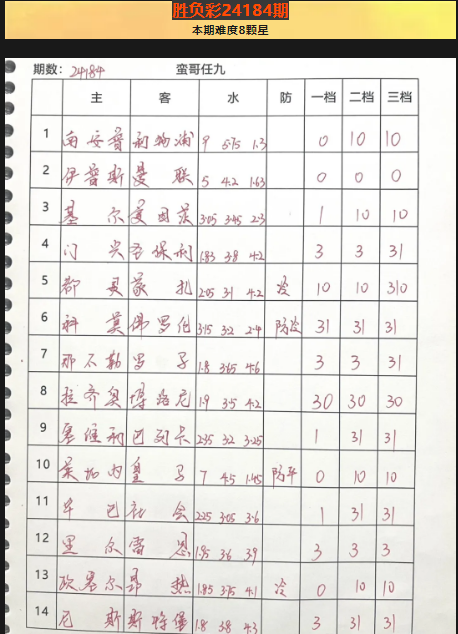 胜负彩24184期
本期难度8颗星
期数: 24184 蛮哥任九
主 客 水 防 一档 二档 三档
1 南安普 利物浦 9 5.75 1.3 0 10 10
2 伊普斯 曼联 5 4.2 1.63 0 0 0
3 基尔 美因茨 3.05 3.45 2.3 1 10 10
4 门兴 圣保利 1.83 3.8 4.2 3 3 31
5 都灵 蒙扎 2.05 3.1 4.2 冷 10 10 310
6 科莫 佛罗伦 3.15 3.2 2.4 防冷 31 31 31
7 那不勒 罗马 1.8 3.65 4.6 3 3 31
8 拉齐奥 博洛尼 1.9 3.5 4.2 30 30 30
9 塞维利 巴列卡 2.35 3.2 3.25 1 31 31
10 莱加内 皇马 7 4.5 1.45 防平 0 10 10
11 毕巴 社会 2.25 3.05 3.6 1 31 31
12 里尔 雷恩 1.95 3.6 3.9 3 3 3
13 欧塞尔 昂热 1.85 3.75 4.1 冷 0 10 10
14 尼斯 斯特堡 1.8 3.8 4.3 3 31 31